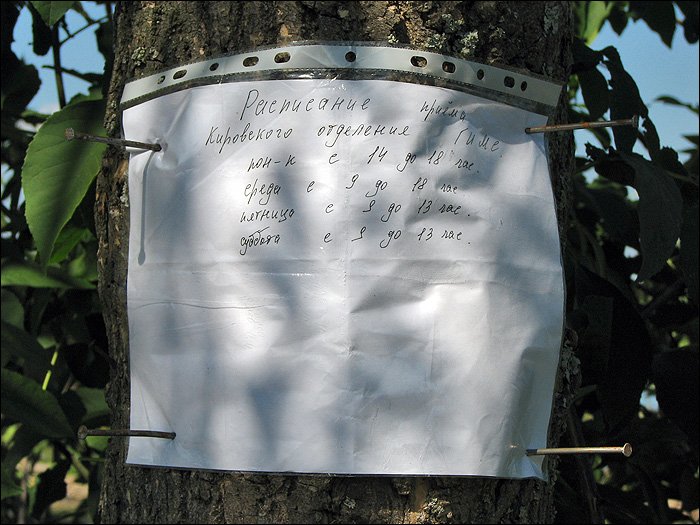 Расписание приёма
Кировского отделения ГИМС.
пон-к с 14 до 18 час.
среда с 9 до 18 час
пятница с 9 до 13 час.
суббота с 9 до 13 час.